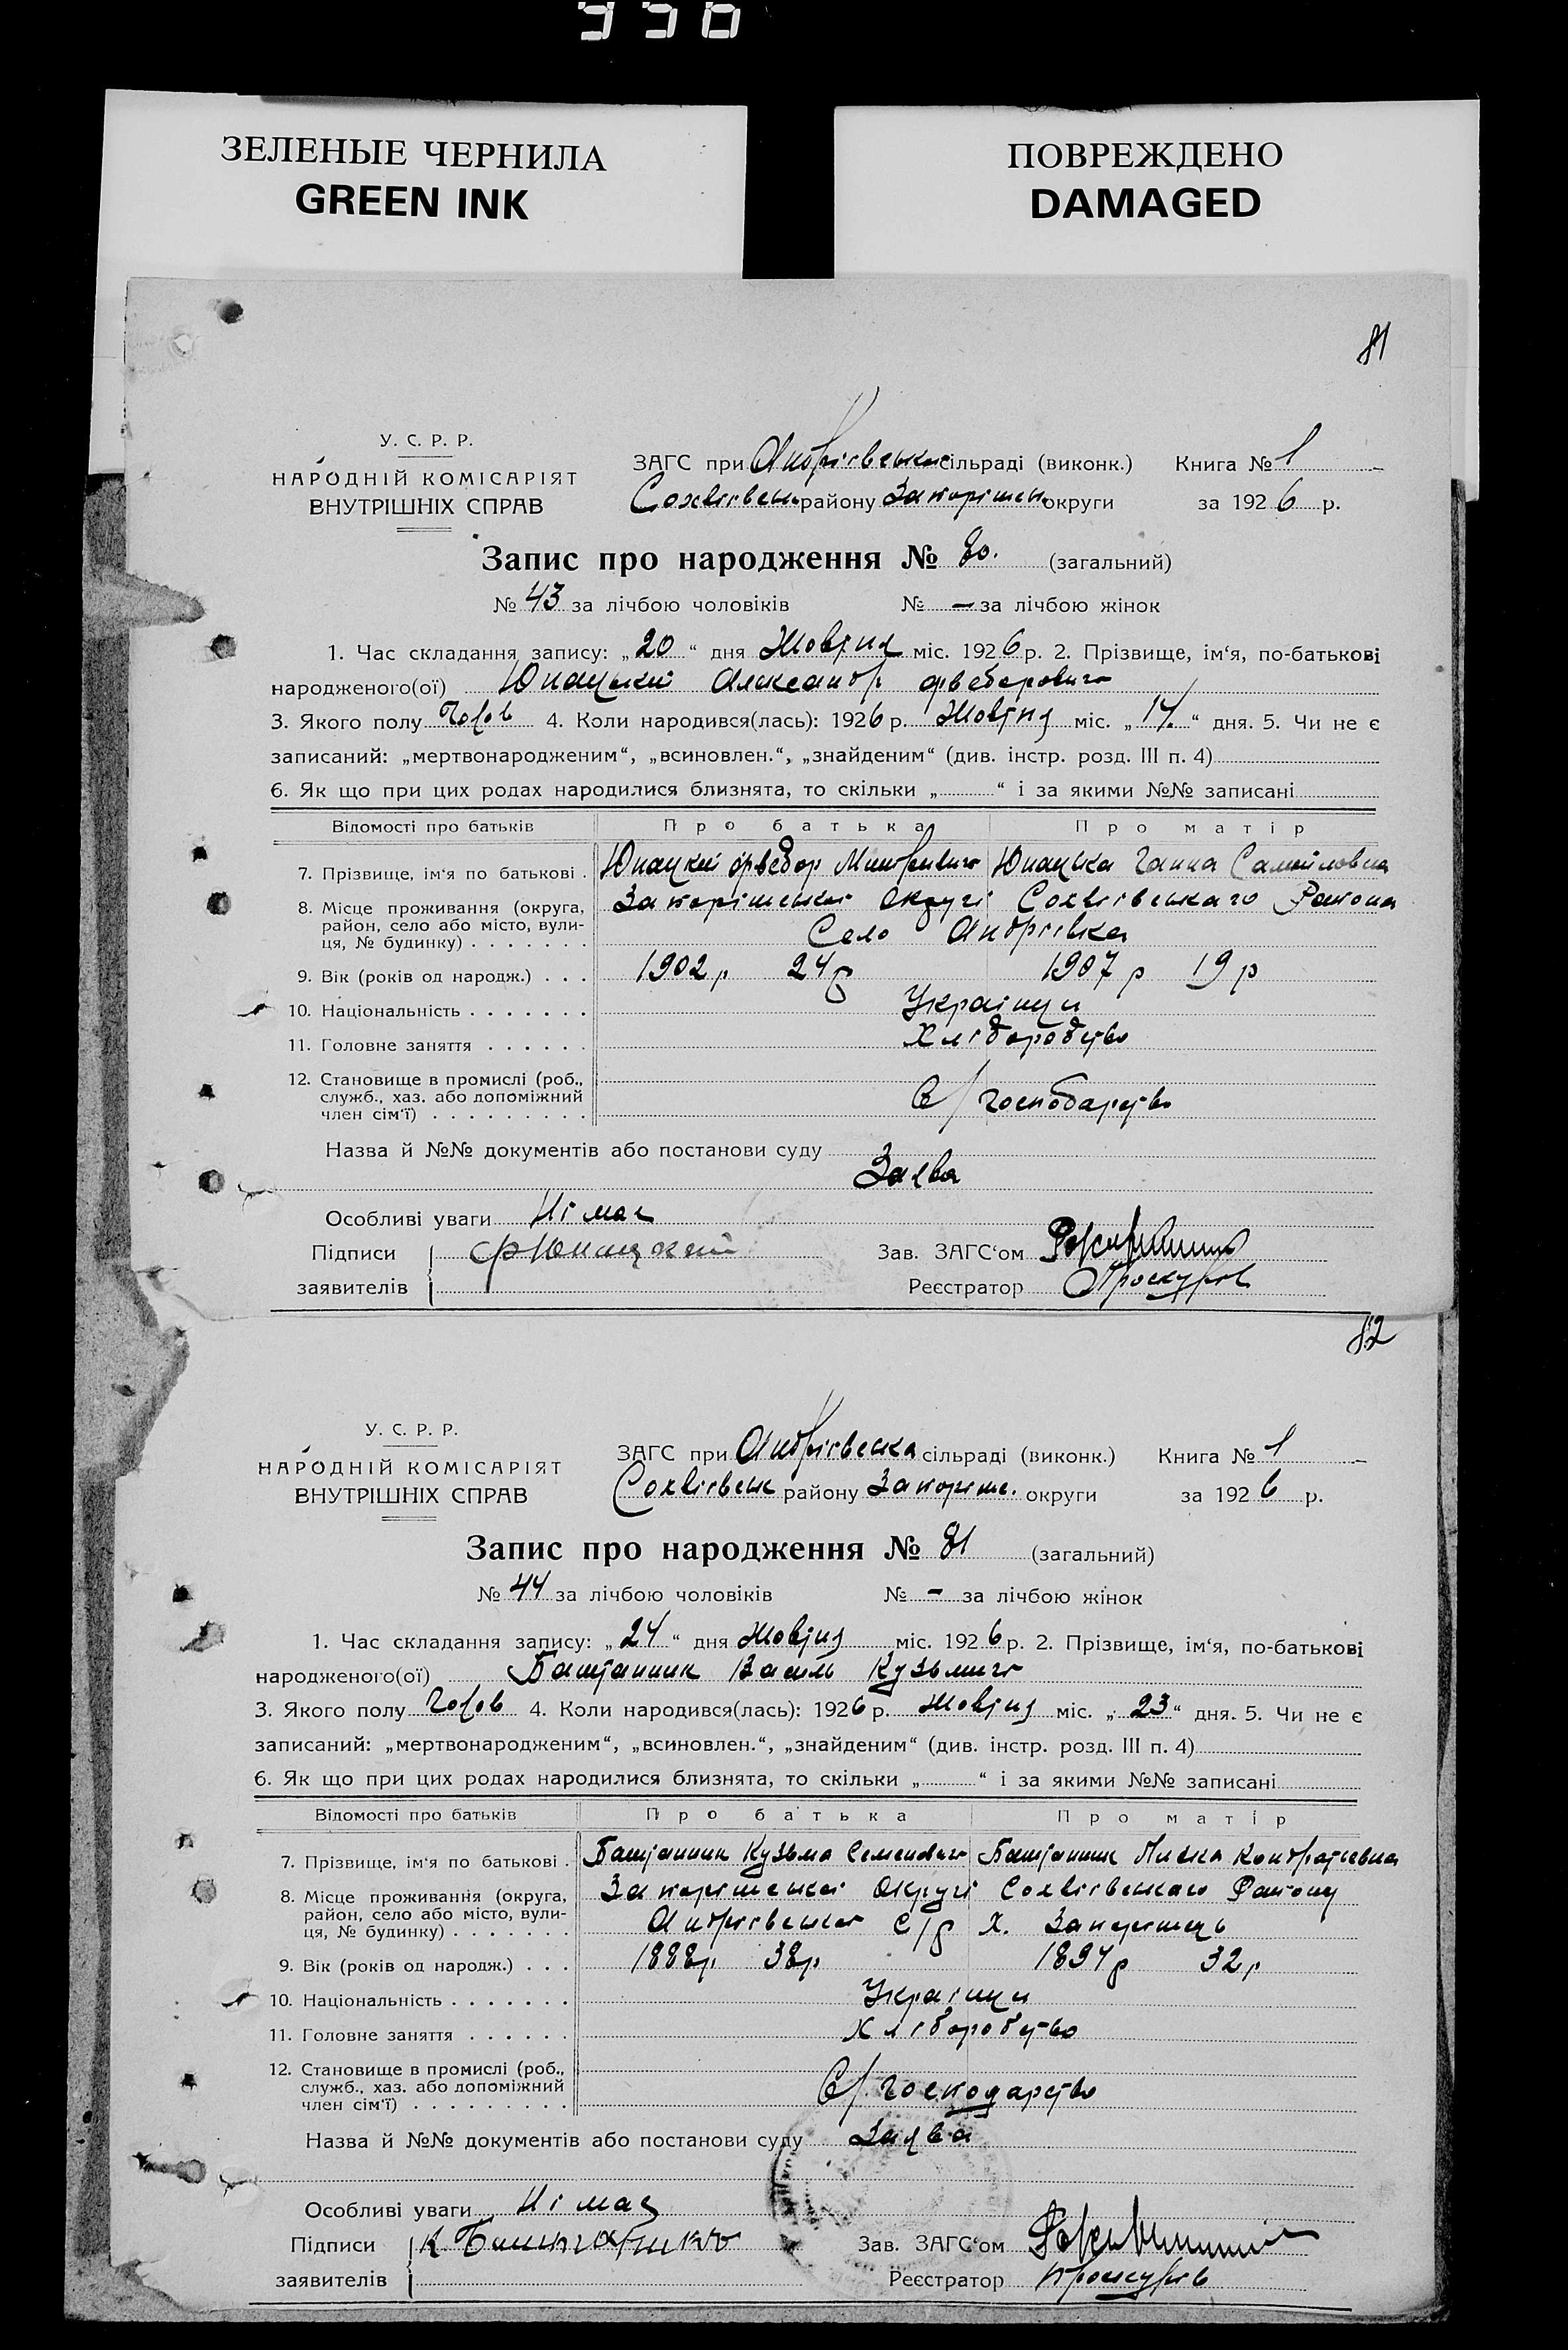 ЗЕЛЕНЫЕ ЧЕРНИЛА
GREEN INK
ПОВРЕЖДЕНО
DAMAGED
81
У. С. Р. Р.
НАРОДНІЙ КОМІСАРІЯТ
ВНУТРІШНІХ СПРАВ
ЗАГС при Андріївська сільраді (виконк.) Книга № 1
району округи за 1926 р.
Запис про народження № 80. (загальний)
№ 43 за лічбою чоловіків № — за лічбою жінок
1. Час складання запису: „20“ дня Жовтня міс. 1926 р. 2. Прізвище, ім‘я, по-батькові
народженого(ої) Юнацький Александр Фведорович
3. Якого полу Чолов 4. Коли народився(лась): 1926 р. Жовтня міс. „14.“ дня. 5. Чи не є
записаний: „мертвонародженим“, „всиновлен.“, „знайденим“ (див. інстр. розд. III п. 4)
6. Як що при цих родах народилися близнята, то скільки „ “ і за якими №№ записані
Відомості про батьків Про батька Про матір
7. Прізвище, ім‘я по батькові . Юнацкий Фведор Юнацька Ганна Самойловна
8. Місце проживання (округа, Округі Района
район, село або місто, вули- Село Андріївка
ця, № будинку) . . . . . . .
9. Вік (років од народж.) . . . 1902 р 24 р 1907 р 19 р
10. Національність . . . . . . . Українці
11. Головне заняття . . . . . . Хліборобство
12. Становище в промислі (роб.,
служб., хаз. або допоміжний С/господарство
член сім‘ї) . . . . . . . . .
Назва й №№ документів або постанови суду
Заява
Особливі уваги Німає
Підписи Ф Юнацкий Зав. ЗАГС‘ом
заявителів Реєстратор Проскурів
82
У. С. Р. Р.
НАРОДНІЙ КОМІСАРІЯТ
ВНУТРІШНІХ СПРАВ
ЗАГС при Андріївська сільраді (виконк.) Книга № 1
району округи за 1926 р.
Запис про народження № 81 (загальний)
№ 44 за лічбою чоловіків № - за лічбою жінок
1. Час складання запису: „24“ дня Жовтня міс. 1926 р. 2. Прізвище, ім‘я, по-батькові
народженого(ої) Баштанник Василь Кузьмич
3. Якого полу Чолов 4. Коли народився(лась): 1926 р. Жовтня міс. „23“ дня. 5. Чи не є
записаний: „мертвонародженим“, „всиновлен.“, „знайденим“ (див. інстр. розд. III п. 4)
6. Як що при цих родах народилися близнята, то скільки „ “ і за якими №№ записані
Відомості про батьків Про батька Про матір
7. Прізвище, ім‘я по батькові . Баштанник Кузьма Семенович Баштанник Кондратьевна
8. Місце проживання (округа, Округі Району
район, село або місто, вули- Андріївська с/р Х. Запоріжець
ця, № будинку) . . . . . . .
9. Вік (років од народж.) . . . 1888 р 38 р 1894 р 32 р
10. Національність . . . . . . . Українци
11. Головне заняття . . . . . . Хліборобство
12. Становище в промислі (роб.,
служб., хаз. або допоміжний С/господарство
член сім‘ї) . . . . . . . . .
Назва й №№ документів або постанови суду Заява
Особливі уваги Німає
Підписи К Зав. ЗАГС‘ом
заявителів Реєстратор Проскурів